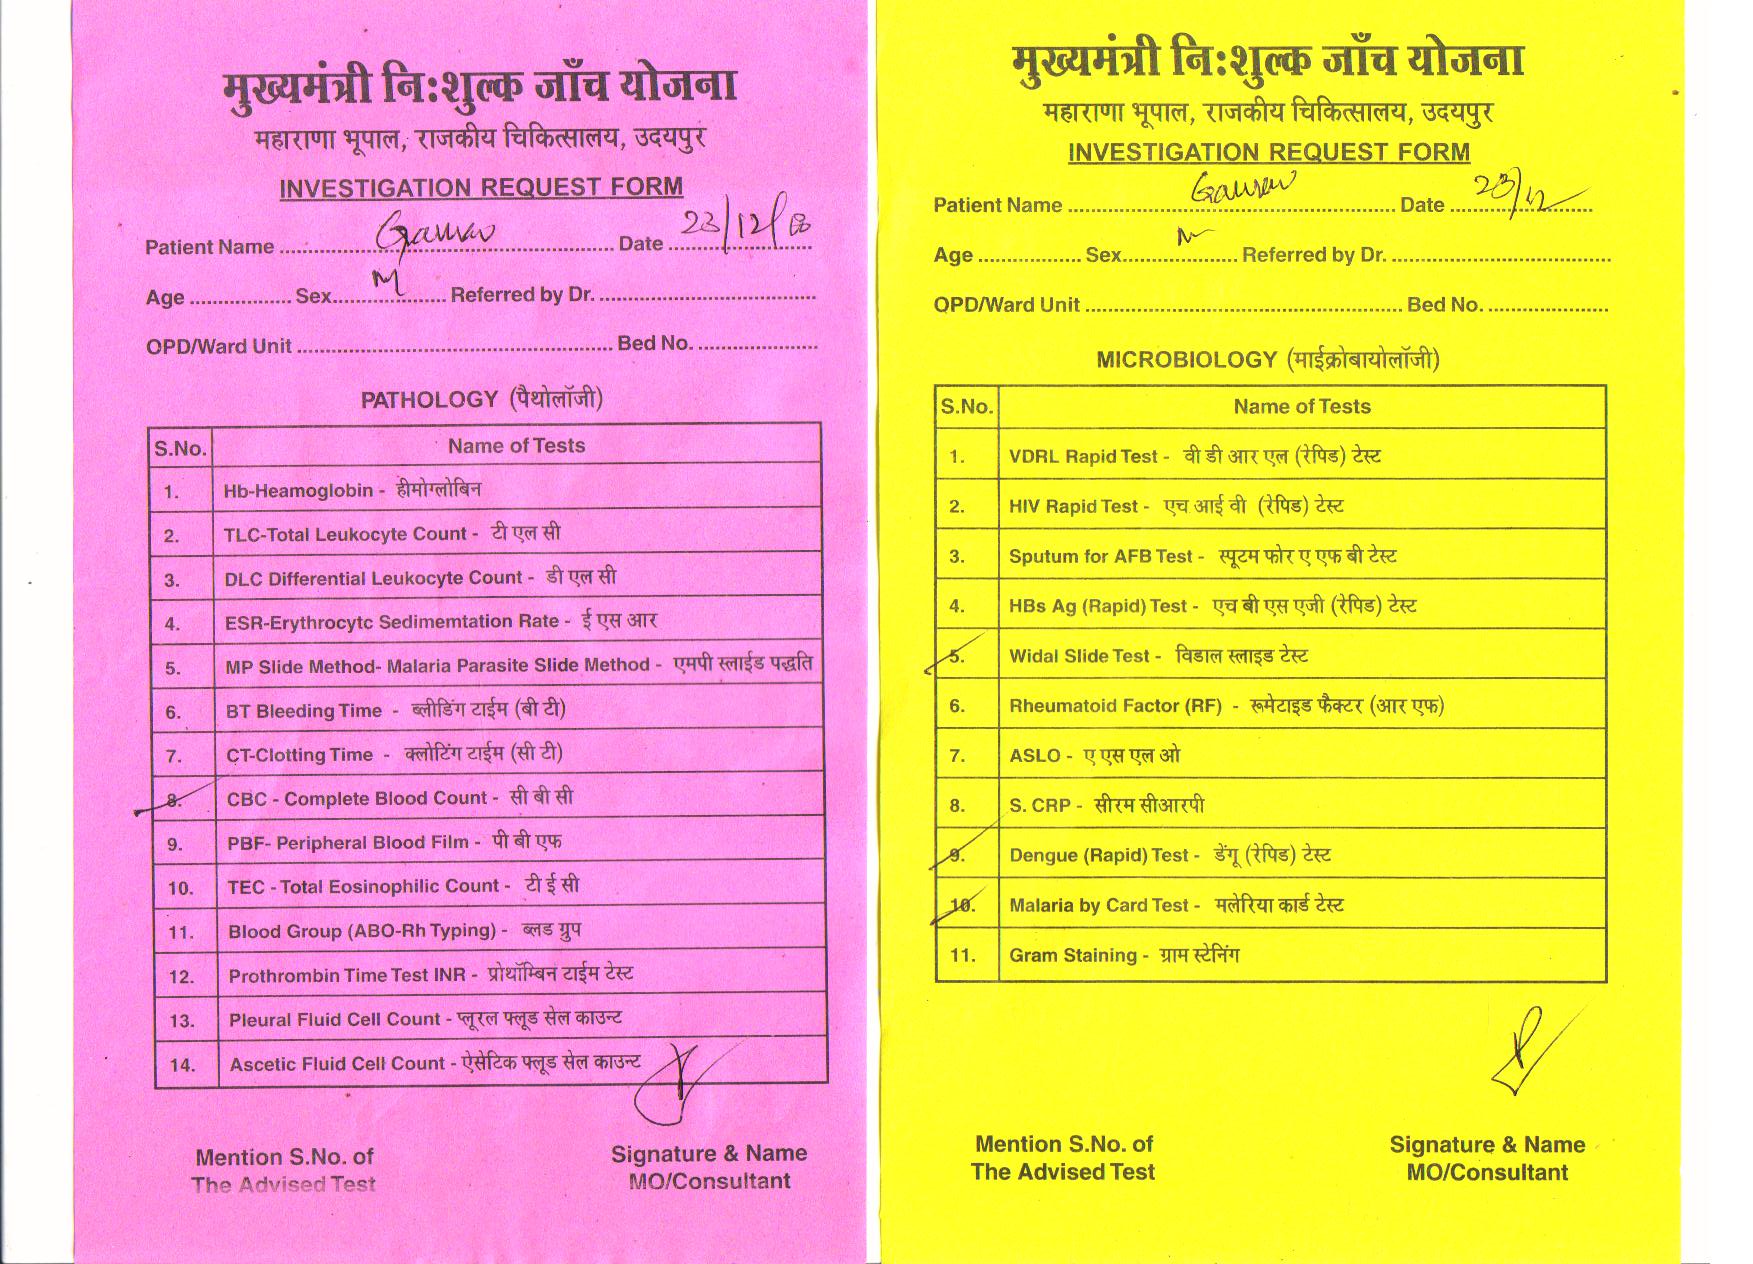 मुख्यमंत्री नि:शुल्क जाँच योजना
महाराणा भूपाल, राजकीय चिकित्सालय, उदयपुर
INVESTIGATION REQUEST FORM
Patient Name Gaurav Date 23/12/
Age Sex M Referred by Dr.
OPD/Ward Unit Bed No.
PATHOLOGY (पैथोलॉजी)
S.No. Name of Tests
1. Hb-Heamoglobin - हीमोग्लोबिन
2. TLC-Total Leukocyte Count - टी एल सी
3. DLC Differential Leukocyte Count - डी एल सी
4. ESR-Erythrocytc Sedimemtation Rate - ई एस आर
5. MP Slide Method- Malaria Parasite Slide Method - एमपी स्लाईड पद्धति
6. BT Bleeding Time - ब्लीडिंग टाईम (बी टी)
7. CT-Clotting Time - क्लोटिंग टाईम (सी टी)
8. CBC - Complete Blood Count - सी बी सी
9. PBF- Peripheral Blood Film - पी बी एफ
10. TEC - Total Eosinophilic Count - टी ई सी
11. Blood Group (ABO-Rh Typing) - ब्लड ग्रुप
12. Prothrombin Time Test INR - प्रोथॉम्बिन टाईम टेस्ट
13. Pleural Fluid Cell Count - प्लूरल फ्लूड सेल काउन्ट
14. Ascetic Fluid Cell Count - ऐसेटिक फ्लूड सेल काउन्ट
Mention S.No. of
The Advised Test
Signature & Name
MO/Consultant
मुख्यमंत्री नि:शुल्क जाँच योजना
महाराणा भूपाल, राजकीय चिकित्सालय, उदयपुर
INVESTIGATION REQUEST FORM
Patient Name Gaurav Date 23/12
Age Sex M Referred by Dr.
OPD/Ward Unit Bed No.
MICROBIOLOGY (माईक्रोबायोलॉजी)
S.No. Name of Tests
1. VDRL Rapid Test - वी डी आर एल (रेपिड) टेस्ट
2. HIV Rapid Test - एच आई वी (रेपिड) टेस्ट
3. Sputum for AFB Test - स्पूटम फोर ए एफ बी टेस्ट
4. HBs Ag (Rapid) Test - एच बी एस एजी (रेपिड) टेस्ट
5. Widal Slide Test - विडाल स्लाइड टेस्ट
6. Rheumatoid Factor (RF) - रूमेटाइड फैक्टर (आर एफ)
7. ASLO - ए एस एल ओ
8. S. CRP - सीरम सीआरपी
9. Dengue (Rapid) Test - डेंगू (रेपिड) टेस्ट
10. Malaria by Card Test - मलेरिया कार्ड टेस्ट
11. Gram Staining - ग्राम स्टेनिंग
Mention S.No. of
The Advised Test
Signature & Name
MO/Consultant